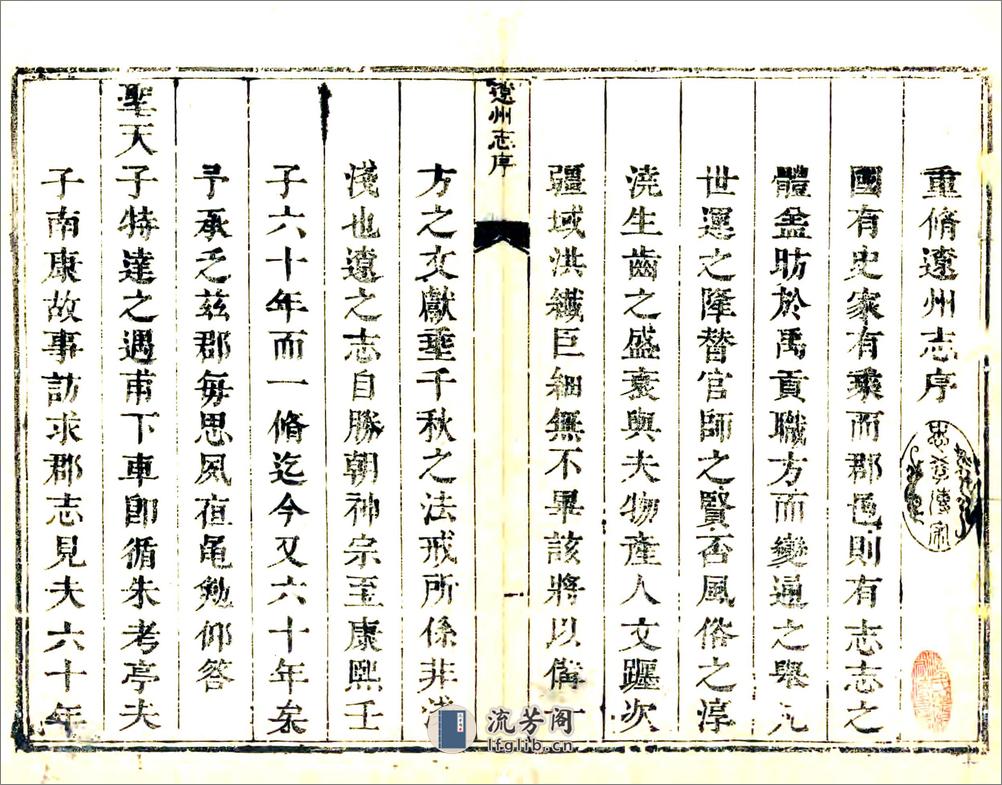 重脩遼州志序
國有史家有乘而郡邑則有志志之
體盖昉於禹貢職方而變通之舉凡
世運之隆替官師之賢否風俗之淳
澆生齒之盛衰與夫物產人文躔次
疆域洪纖巨細無不畢該將以備一
遼州志序
一
方之文獻垂千秋之法戒所係非淺
淺也遼之志自勝朝神宗至康熙壬
子六十年而一脩迄今又六十年矣
予承乏茲郡每思夙夜黽勉仰答
聖天子特達之遇甫下車卽循朱考亭夫
子南康故事訪求郡志見夫六十年
流芳阁
lfglib.cn